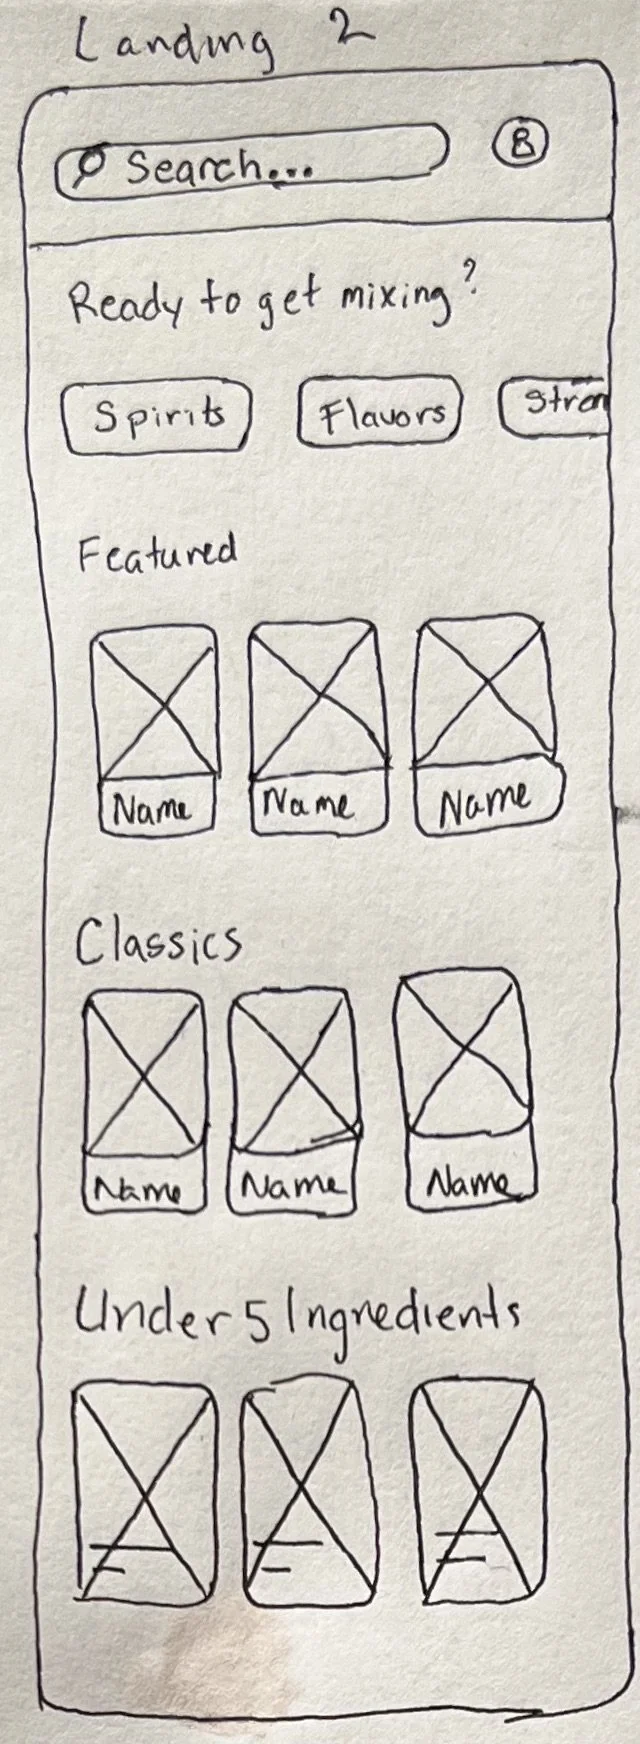 Landing 2
Search...
Ready to get mixing?
Spirits Flavors Stron
Featured
Name Name Name
Classics
Name Name Name
Under 5 Ingredients